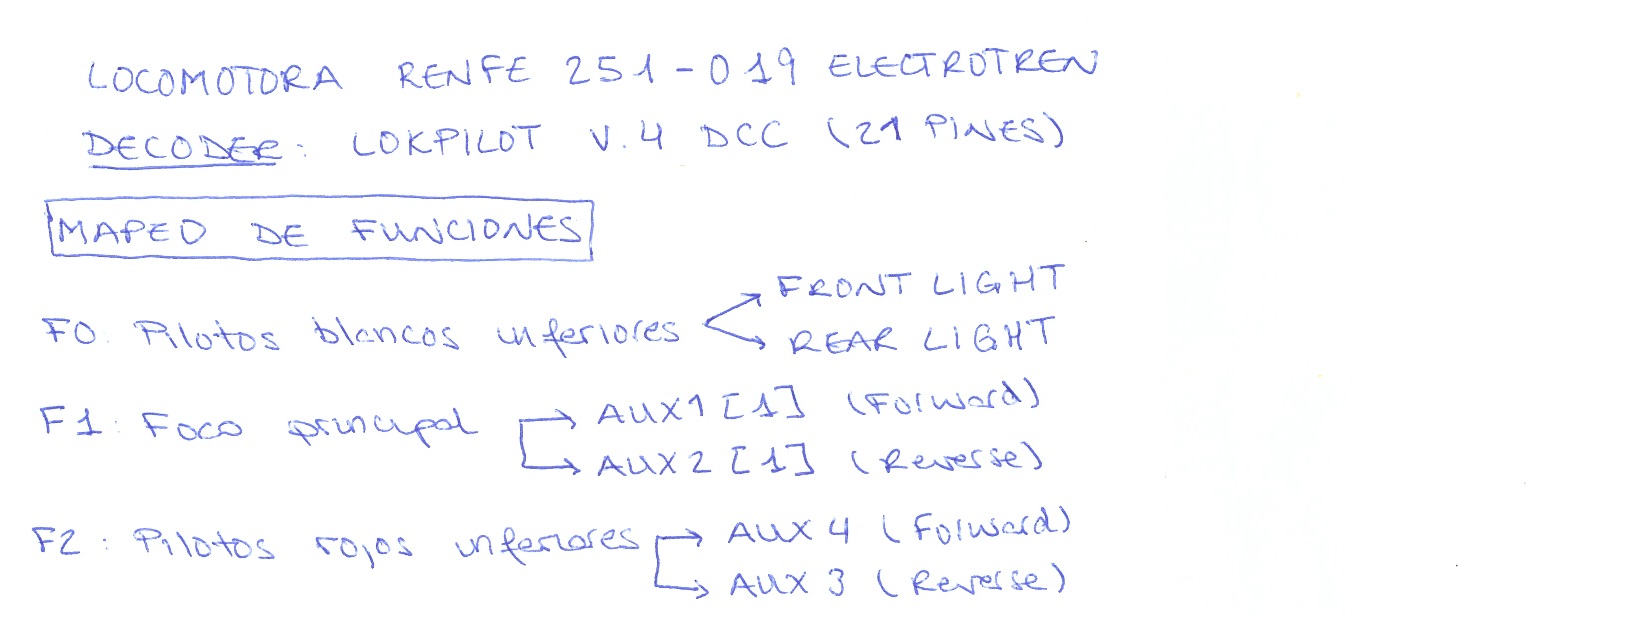 LOCOMOTORA RENFE 251-019 ELECTROTREN
DECODER: LOKPILOT V.4 DCC (21 PINES)
MAPEO DE FUNCIONES
F0: Pilotos blancos inferiores
FRONT LIGHT
REAR LIGHT
F1: Foco principal
AUX1 [1] (Forward)
AUX2 [1] (Reverse)
F2: Pilotos rojos inferiores
AUX 4 (Forward)
AUX 3 (Reverse)